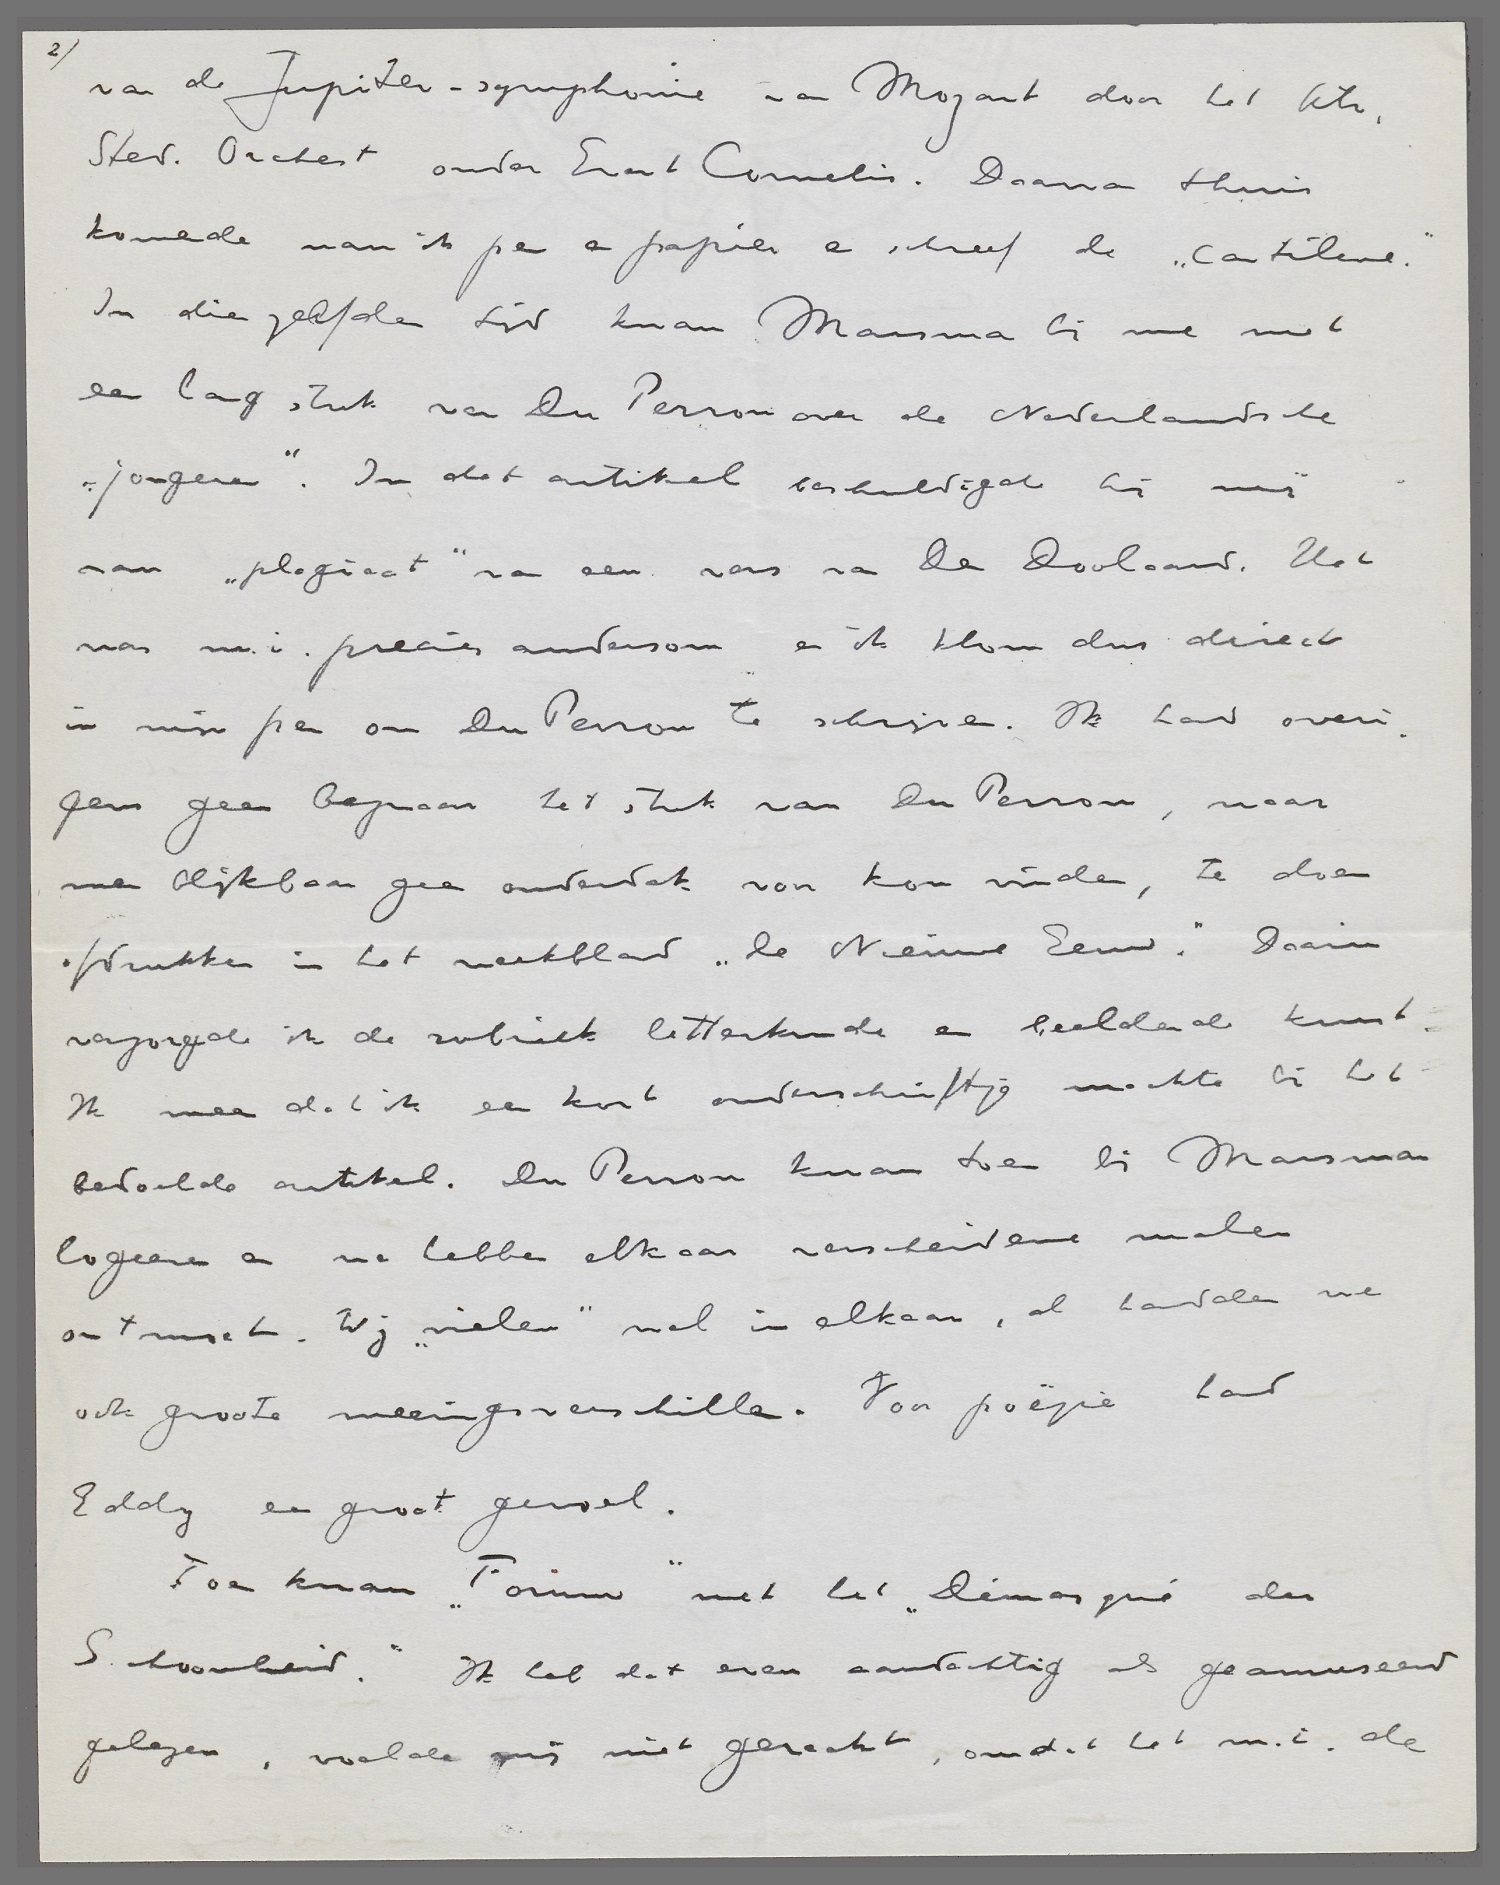 2/
van de Jupiter-symphonie van Mozart door het Utr.
Sted. Orchest onder Evert Cornelis. Daarna thuis
komende nam ik pen en papier en schreef de „Cantilene."
In diezelfden tijd kwam Marsman bij me met
een lang stuk van Du Perron over de Nederlandsche
„jongeren". In dat artikel beschuldigde hij mij
van „plagiaat" van een vers van Den Doolaard. Het
was m.i. precies andersom en ik klom dus direct
in mijn pen om Du Perron te schrijven. Ik had overi-
gens geen bezwaar het stuk van Du Perron, waar
men blijkbaar geen onderdak voor kon vinden, te doen
afdrukken in het weekblad „De Nieuwe Eeuw." Daarin
verzorgde ik de rubriek letterkunde en beeldende kunst.
Ik meen dat ik een kort onderschriftje maakte bij het
bedoelde artikel. Du Perron kwam toen bij Marsman
logeeren en we hebben elkaar verscheidene malen
ontmoet. Wij „vielen" wel in elkaar, al hadden we
ook groote meeningsverschillen. Voor poëzie had
Eddy een groot gevoel.
Toen kwam „Forum" met het „Démasqué der
Schoonheid." Ik heb dat even aandachtig als geamuseerd
gelezen, voelde mij niet geraakt, omdat het m.i. de